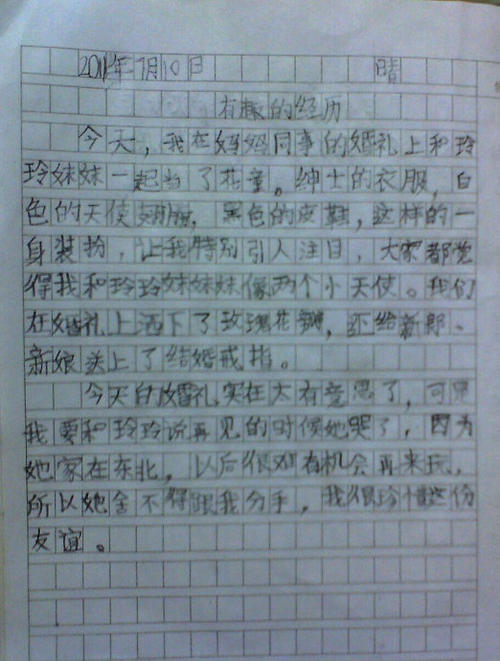 2011年7月10日 晴
有趣的经历
今天，我在妈妈同事的婚礼上和玲
玲妹妹一起当了花童。绅士的衣服，白
色的天使翅膀，黑色的皮鞋，这样的一
身装扮，让我特别引人注目，大家都觉
得我和玲玲妹妹妹像两个小天使。我们
在婚礼上洒下了玫瑰花瓣，还给新郎、
新娘送上了结婚戒指。
今天的婚礼实在太有意思了，可是
我要和玲玲说再见的时候她哭了，因为
她家在东北，以后很难有机会再来玩，
所以她舍不得跟我分手，我很珍惜这份
友谊。